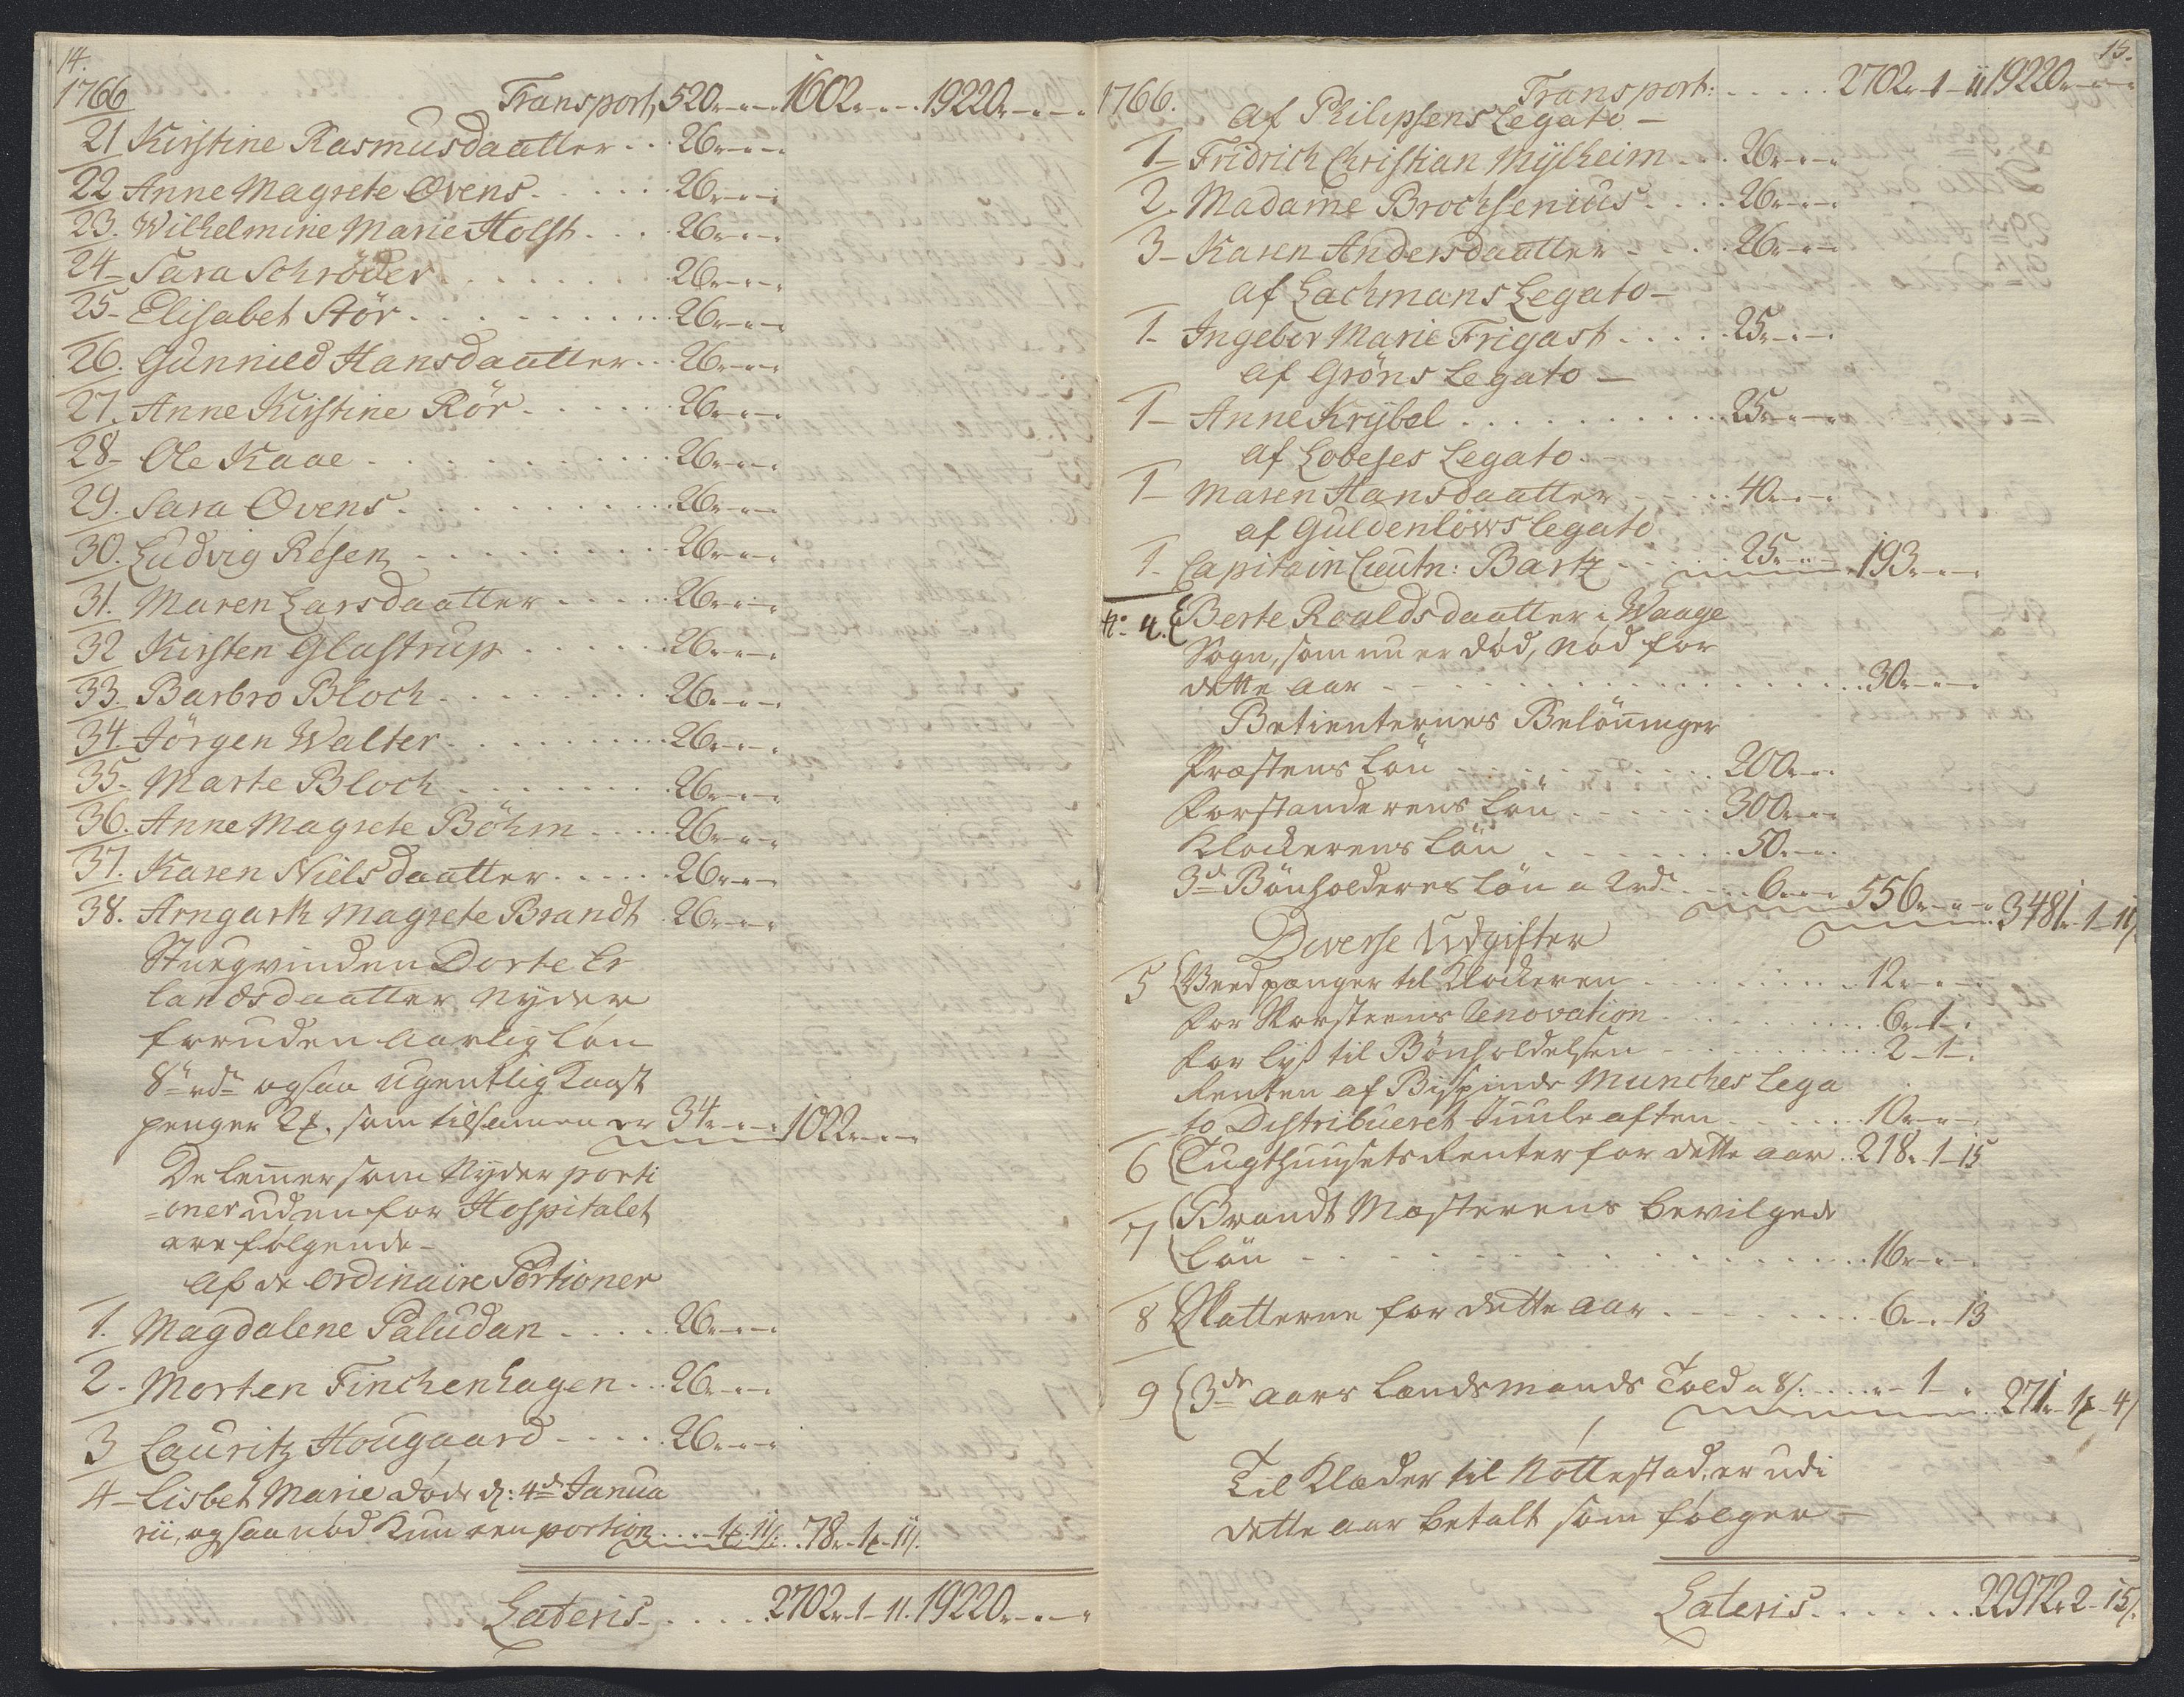 14.
1766
Transport, 520 „ - „ - „ 1602 „ - „ - „ 19220 „ - „ - „
21 Kirstine Rasmusdaatter . . 26 „ - „ - „
22 Anne Magrete Ovens . . . . . 26 „ - „ - „
23. Wilhelmine Marie Holst . . . 26 „ - „ - „
24 - Sara Schröder . . . . . . . 26 „ - „ - „
25 - Elisabet Stör . . . . . . . . 26 „ - „ - „
26. Gunnild Hansdaatter . . 26 „ - „ - „
27. Anne Kirstine Rör . . . . . 26 „ - „ - „
28 - Ole Kaae . . . . . . . . . 26 „ - „ - „
29. Sara Ovens . . . . . . . . 26 „ - „ - „
30. Ludvig Rosen . . . . . . . 26 „ - „ - „
31. Maren Larsdaatter . . . . 26 „ - „ - „
32 Kirsten Glastrup . . . . . 26 „ - „ - „
33 - Barbro Bloch . . . . . . . 26 „ - „ - „
34. Jörgen Walter . . . . . . . 26 „ - „ - „
35 - Marte Bloch . . . . . . . 26 „ - „ - „
36. Anne Magrete Böhm . . . . 26 „ - „ - „
37. Karen Nielsdaatter . . . . . 26 „ - „ - „
38. Arngarth Magrete Brandt 26 „ - „ - „
Stuegvinden Dorte Er
landsdaatter nyder
foruden aarlig Løn
8te rd. ogsaa ugentlig Kaast
penger 2 ꝑ. som tilsamen er 34 „ - „ - „ 1022 „ - „ - „
De Lemer som Nyder porti
=oner uden for Hospitalet
ere følgende -
af de ordinaire Portioner
1. Magdalene Paludan . . . . 26 „ - „ - „
2. Morten Finchenhagen . . . 26 „ - „ - „
3 Lauritz Hougaard . . . . 26 „ - „ - „
4 - Lisbet Marie døde d: 4de Janua
rii, og saa nød Kun een portion . . . - 1ꝑ. 11/. . . 78 „ - 1ꝑ - 11/.
Lateris . . . . . 2702 „ - 1 - 11. 19220 „ - „ - „
15.
1766.
Transport: . . . . . 2702 „ - 1 - 11 19220 „ - „ - „
af Philipsens Legato -
1 - Fridrich Christian Mÿlheim . . . 26 „ - „ - „
2. Madame Brochsenius . . . . 26 „ - „ - „
3 - Karen Andersdaatter . . . . 26 „ - „ - „
af Lachmans Legato -
1 - Ingebor Marie Frigast . . . . 25 „ - „ - „
af Gröns Legato -
1 - Anne Krÿbel . . . . . . . . . . 25 „ - „ - „
af Lobeses Legato -
1 - Maren Hansdaatter . . . . 40 „ - „ - „
af Guldenlöws Legato
1 - Capitain Lieutn: Bartz . . . . 25 „ - „ - „ 193 „ - „ - „
No 4. Berte Roaldsdaatter i Waage
Sogn, som nu er død, nød for
dette aar . . . . . . . . . . . . . . . 30 „ - „ - „
Betienternes Belönninger
Præstens Løn . . . . . . . . . 200 „ - „ - „
Forstanderens Løn . . . . . . 300 „ - „ - „
Klockerens Løn . . . . . . . . 50 „ - „ - „
3de Bönholderes Løn a 2rd. . . . 6 „ - „ - „ 556 „ - „ - „ 3481 „ - 1 - 11/.
Diverse Udgifter
5 Veed pænger til Klockeren . . . . . . . . . 12 „ - „ - „
For Skorsteens Renovation . . . . . . . . . 6 „ - 1 - „
For Lyß til Bönholdelsen . . . . . . . . . 2 - 1 - „
Renten af Bispinde Munches Lega
to Distribueret Juule aften . . . . . . 10 „ - „ - „
6 Tugthuusets Renter for dette aar . . 218 „ 1 - 15
7 Brandt Mæsterens bevilgede
Løn . . . . . . . . . . . . . . . . . 16 „ - „ - „
8 Skatterne for dette aar . . . . . . . 6 „ - „ - 13
9 3de aars Landsmands Told a 8/. . . . „ - 1 - „ 271 „ - 1ꝑ - 4/
Til Klæder til Nøttestad, er udi
dette aar betalt som følger -
Lateris . . . . . . 22972 „ 2 - 15/.